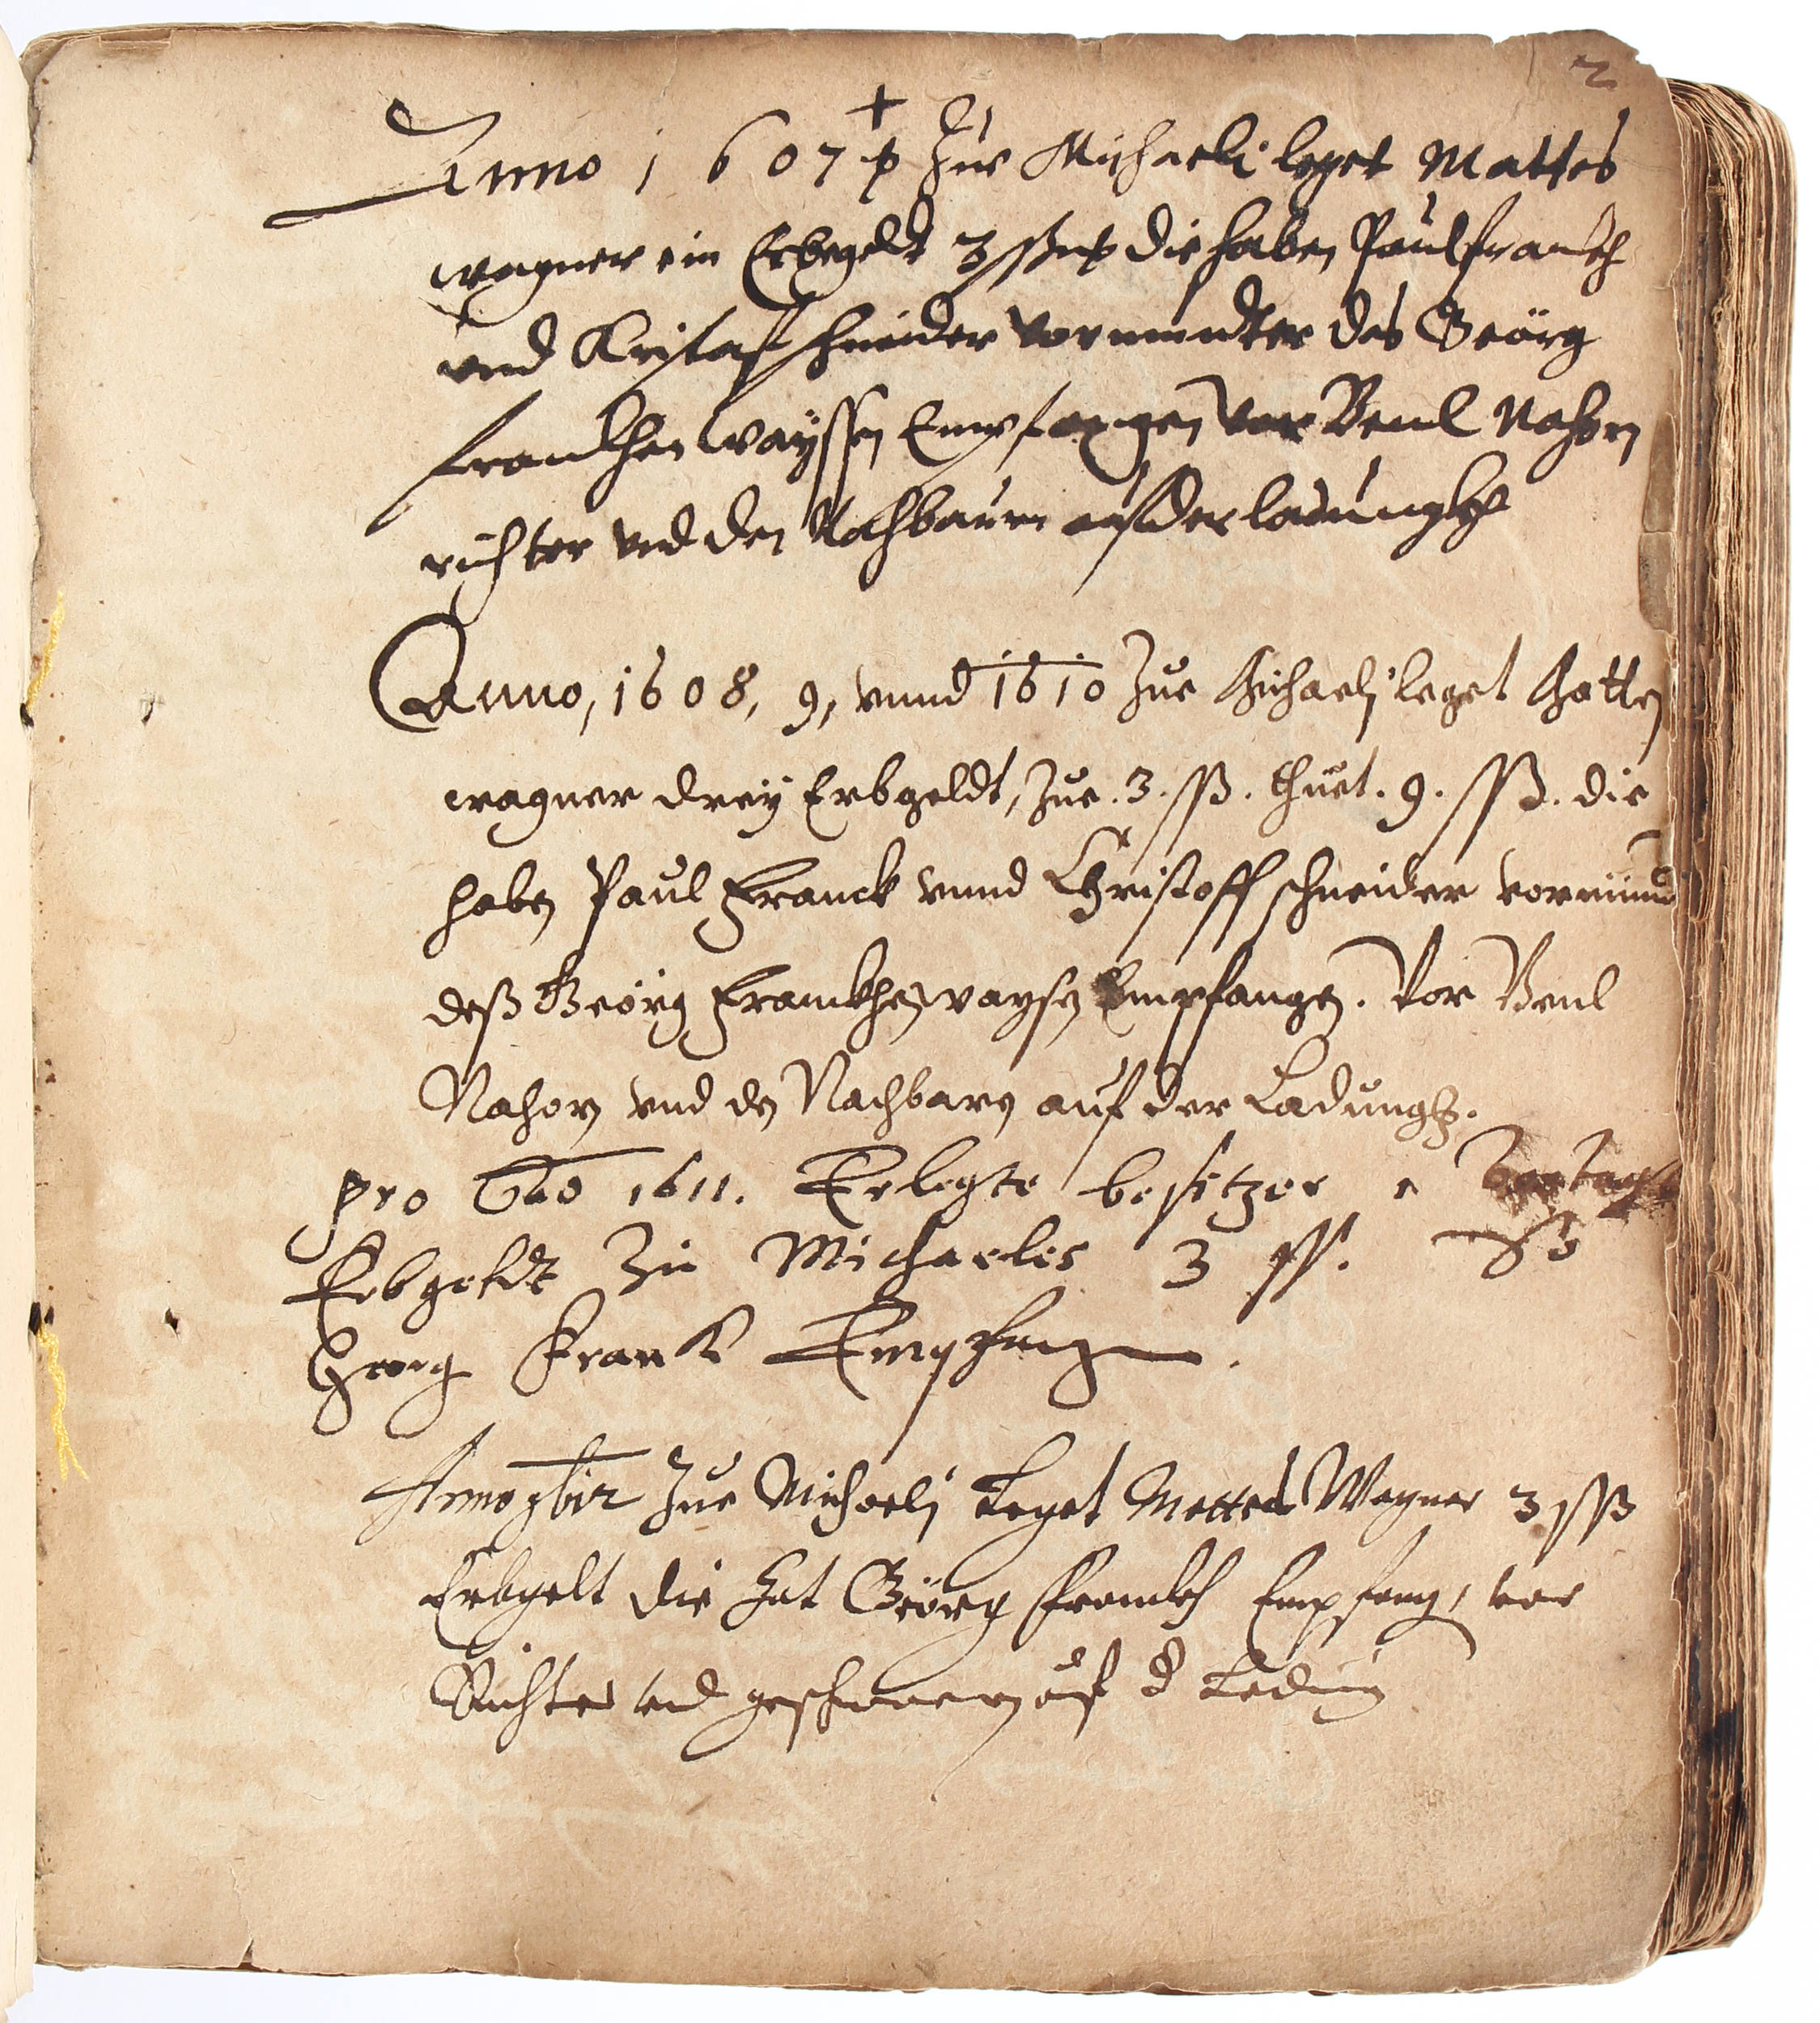 2
Anno 1607 + zue Michaeli leget Mattes
wagner ein Erbgeldt 3 ß die haben Paul franckh
vnd Kristaff schneider vormundter des Geörg
franckhen wayssen Empfangen vor Veul Nahorn
richter vnd den Nachbaurn auf der ladung
Anno, 1608, 9, vnnd 1610 Zue Michaelj leget Matteß
wagner dreÿ Erbgeldt, Zue. 3. ßß. thuet. 9. ßß. die
haben Paul Franck vnnd Christoff schneider vormund
deß Geörg Franckhen waysen Empfangen. Vor Veul
Nahorn vnd den Nachbarn auf der Ladung.
pro 1611. Erlegte besitzer
Erbgeldt Zu Michaeles 3 ßß.
Georg Franck Empfangen.
Anno 612 Zue Michaelj Leget Mattes Wagner 3 ßß
Erbgelt die hat Geörg Franckh Empfangen, vor
Richter vnd geschwornen auf d Ladung